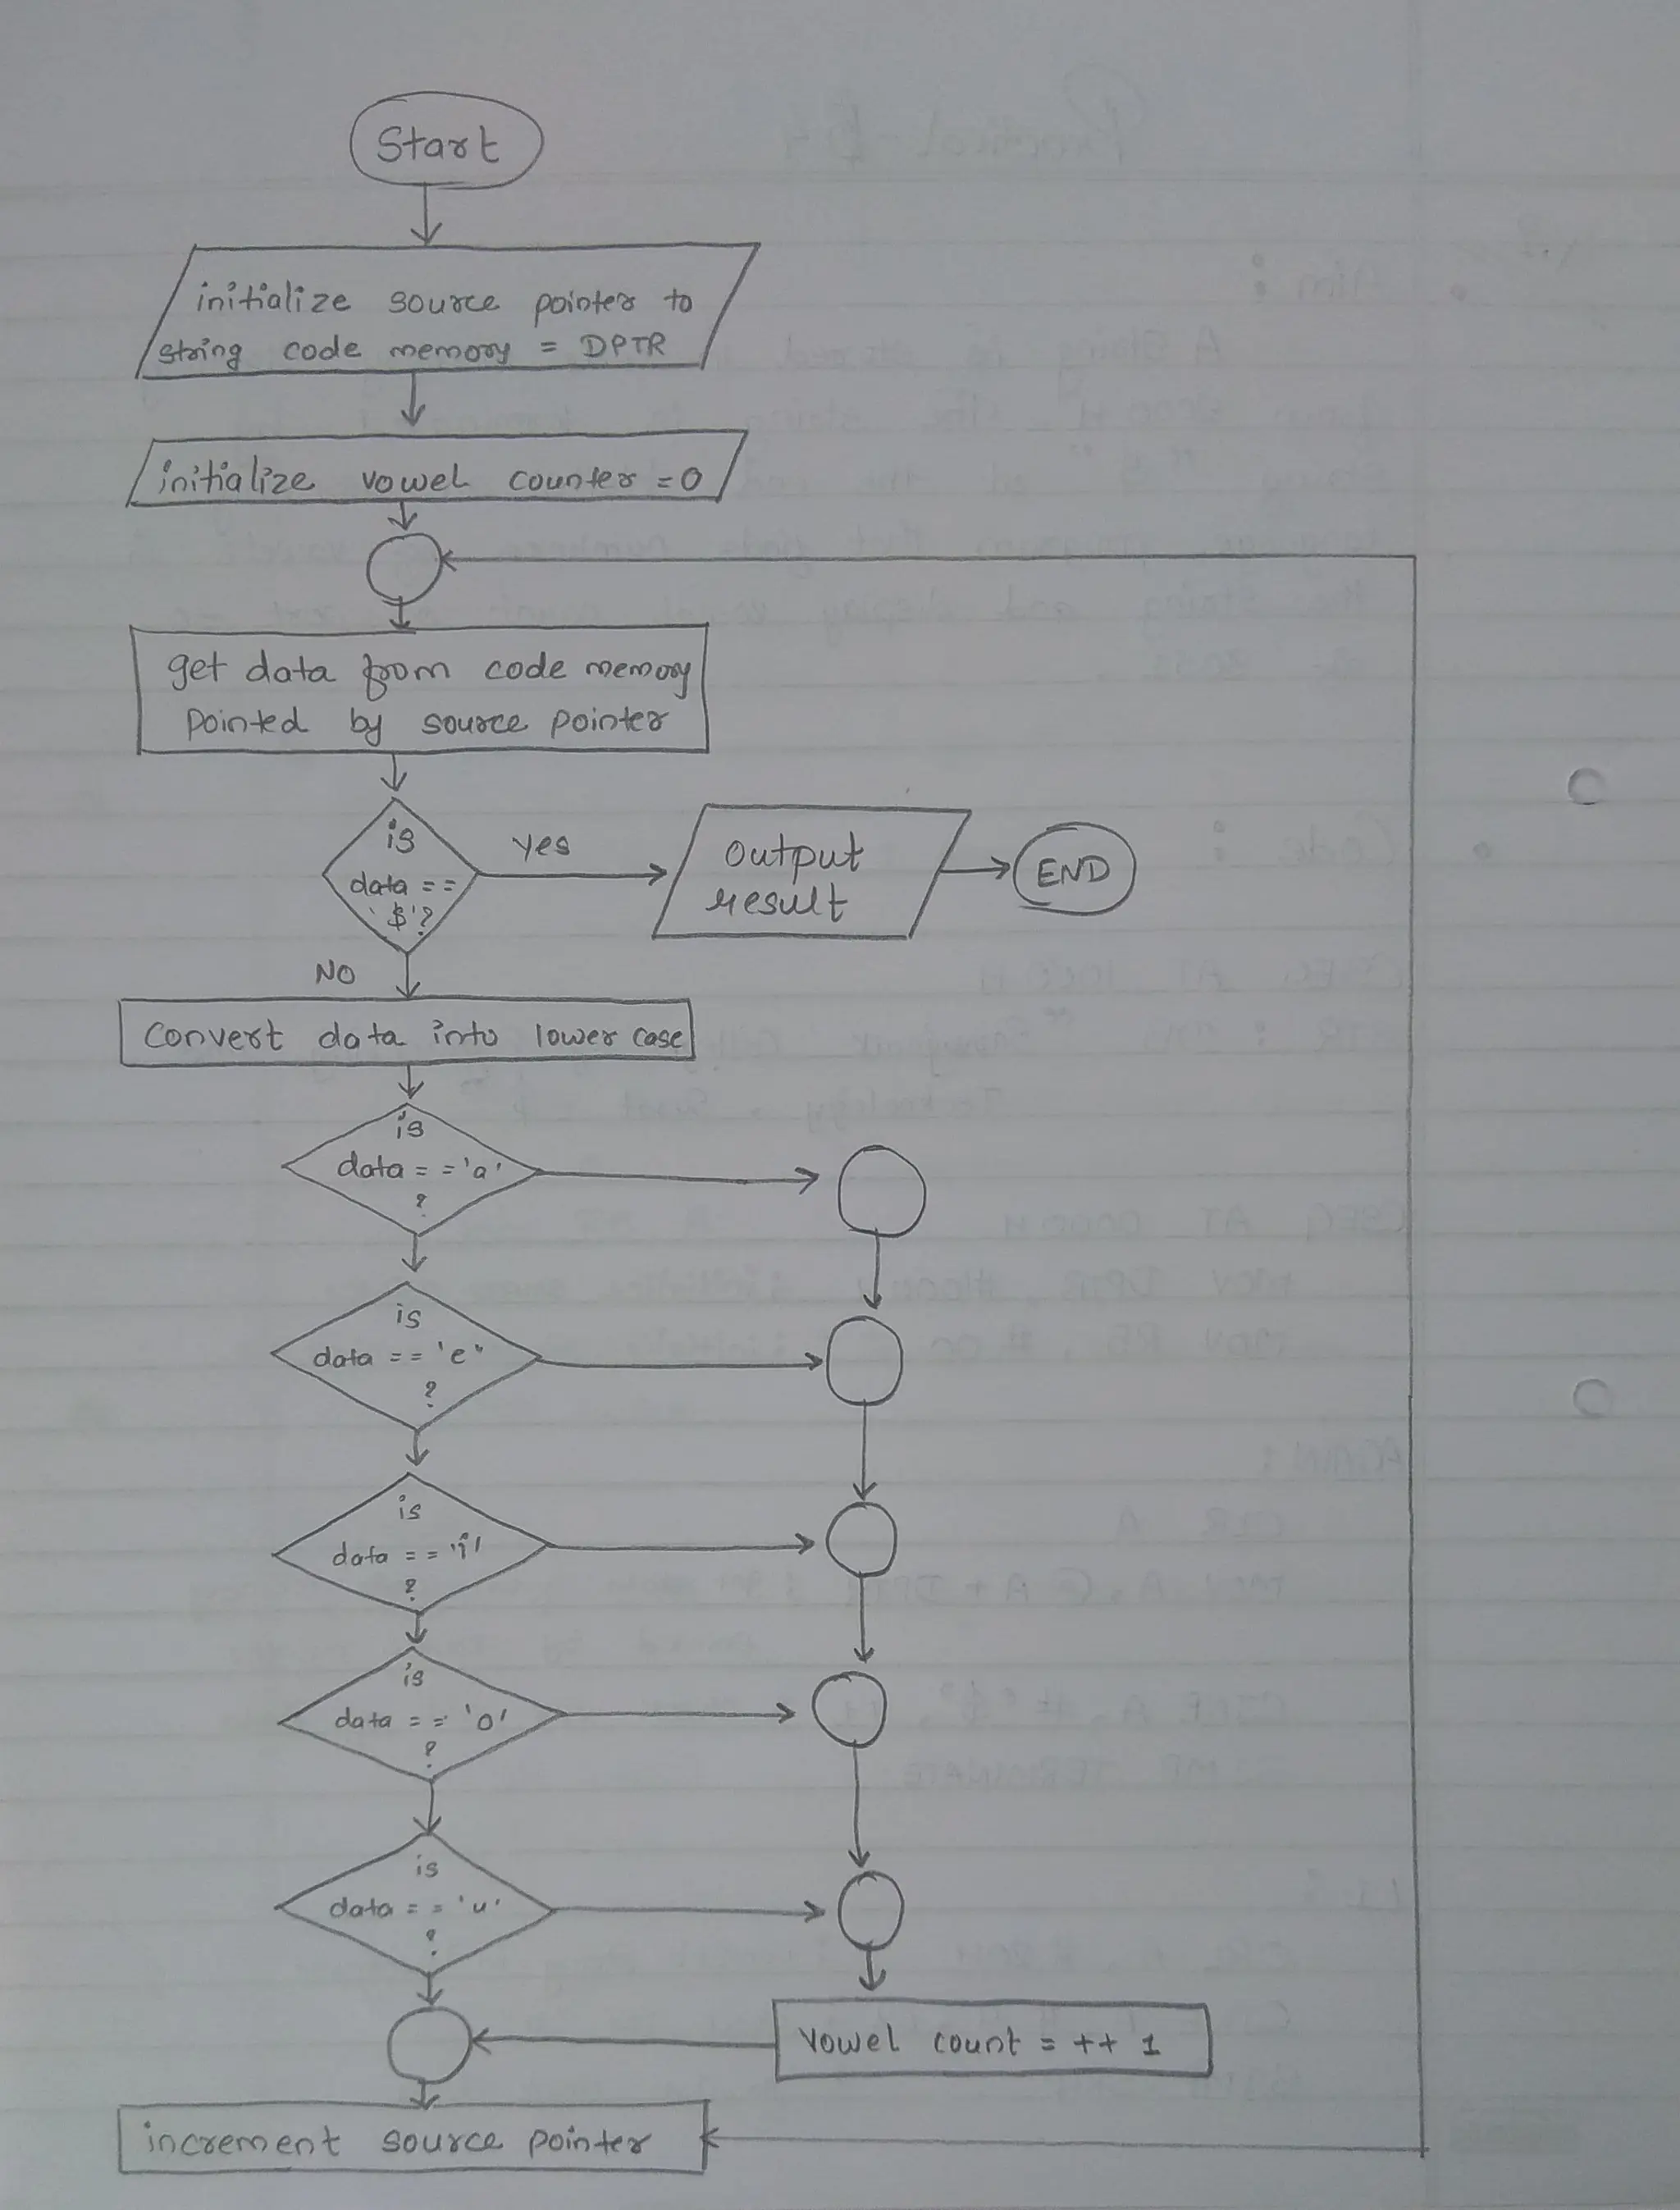 Start
initialize source pointer to
string code memory = DPTR
initialize vowel counter = 0
get data from code memory
pointed by source pointer
is
data ==
'$'?
yes
output
result
END
NO
convert data into lower case
is
data == 'a'
?
is
data == 'e"
?
is
data == 'i'
?
is
data == 'o'
?
is
data == 'u'
?
vowel count = ++ 1
increment source pointer